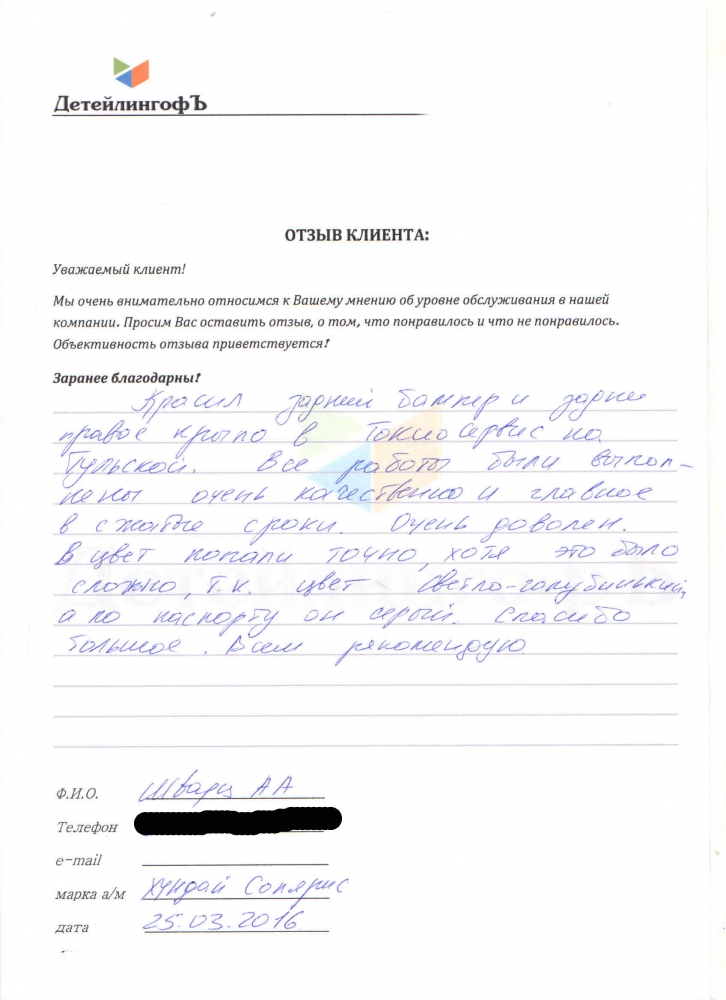 ДетейлингофЪ
ОТЗЫВ КЛИЕНТА:
Уважаемый клиент!
Мы очень внимательно относимся к Вашему мнению об уровне обслуживания в нашей
компании. Просим Вас оставить отзыв, о том, что понравилось и что не понравилось.
Объективность отзыва приветствуется!
Заранее благодарны!
Красил задний бампер и заднее
правое крыло в Токио Сервис на
Тульской. Все работы были выпол-
нены очень качественно и главное
в сжатые сроки. Очень доволен.
В цвет попали точно, хотя это было
сложно, т.к. цвет светло-голубинький,
а по паспорту он серый. Спасибо
большое. Всем рекомендую.
Ф.И.О. Шварц АА
Телефон
e-mail
марка а/м Хундай Солярис
дата 25.03.2016